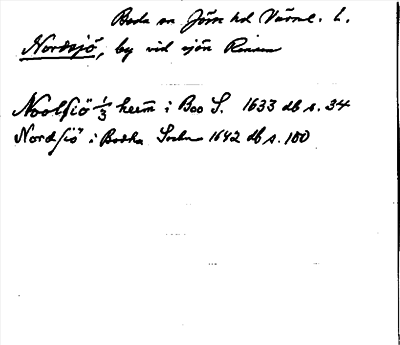 Boda sn Jösse hd Värml. L.
Nordsjö, by vid sjön Rinnen
Noolsiö 1/3 hem̄ i Boo S. 1633 db s. 34
Nordsiö i Bodha Sochn 1642 db s. 180